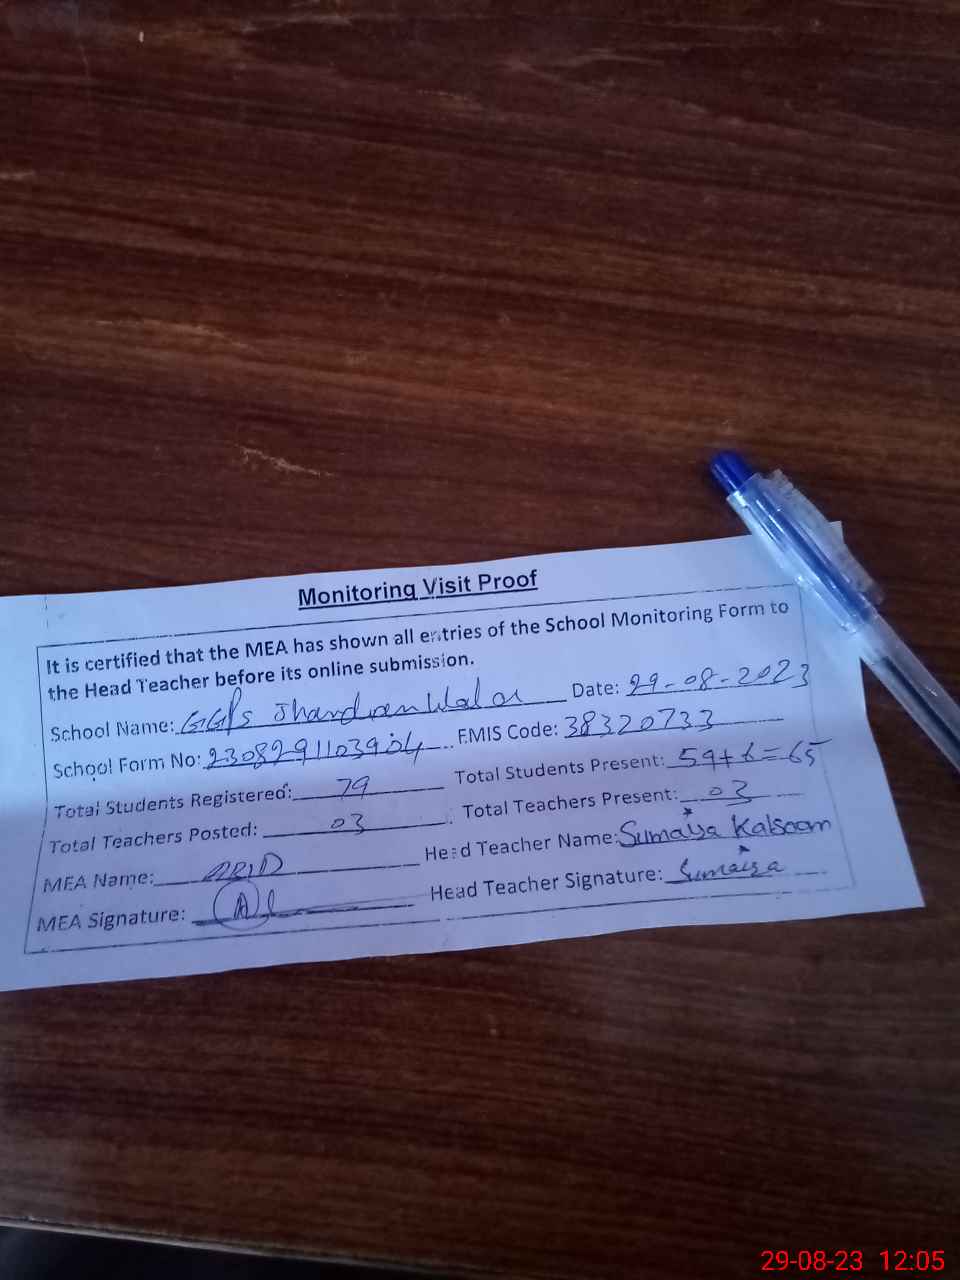 Monitoring Visit Proof
It is certified that the MEA has shown all entries of the School Monitoring Form to
the Head Teacher before its online submission.
School Name: GGPS Date: 29-08-2023
School Form No: EMIS Code: 38320733
Total Students Registered: 79 Total Students Present: 59+6=65
Total Teachers Posted: 03 Total Teachers Present: 03
MEA Name: Head Teacher Name: Sumaiya Kalsoom
MEA Signature: Head Teacher Signature: Sumaiya
29-08-23 12:05